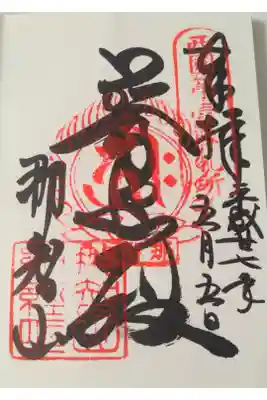 奉拝
平成廿七年
五月五日
普照殿
那智山